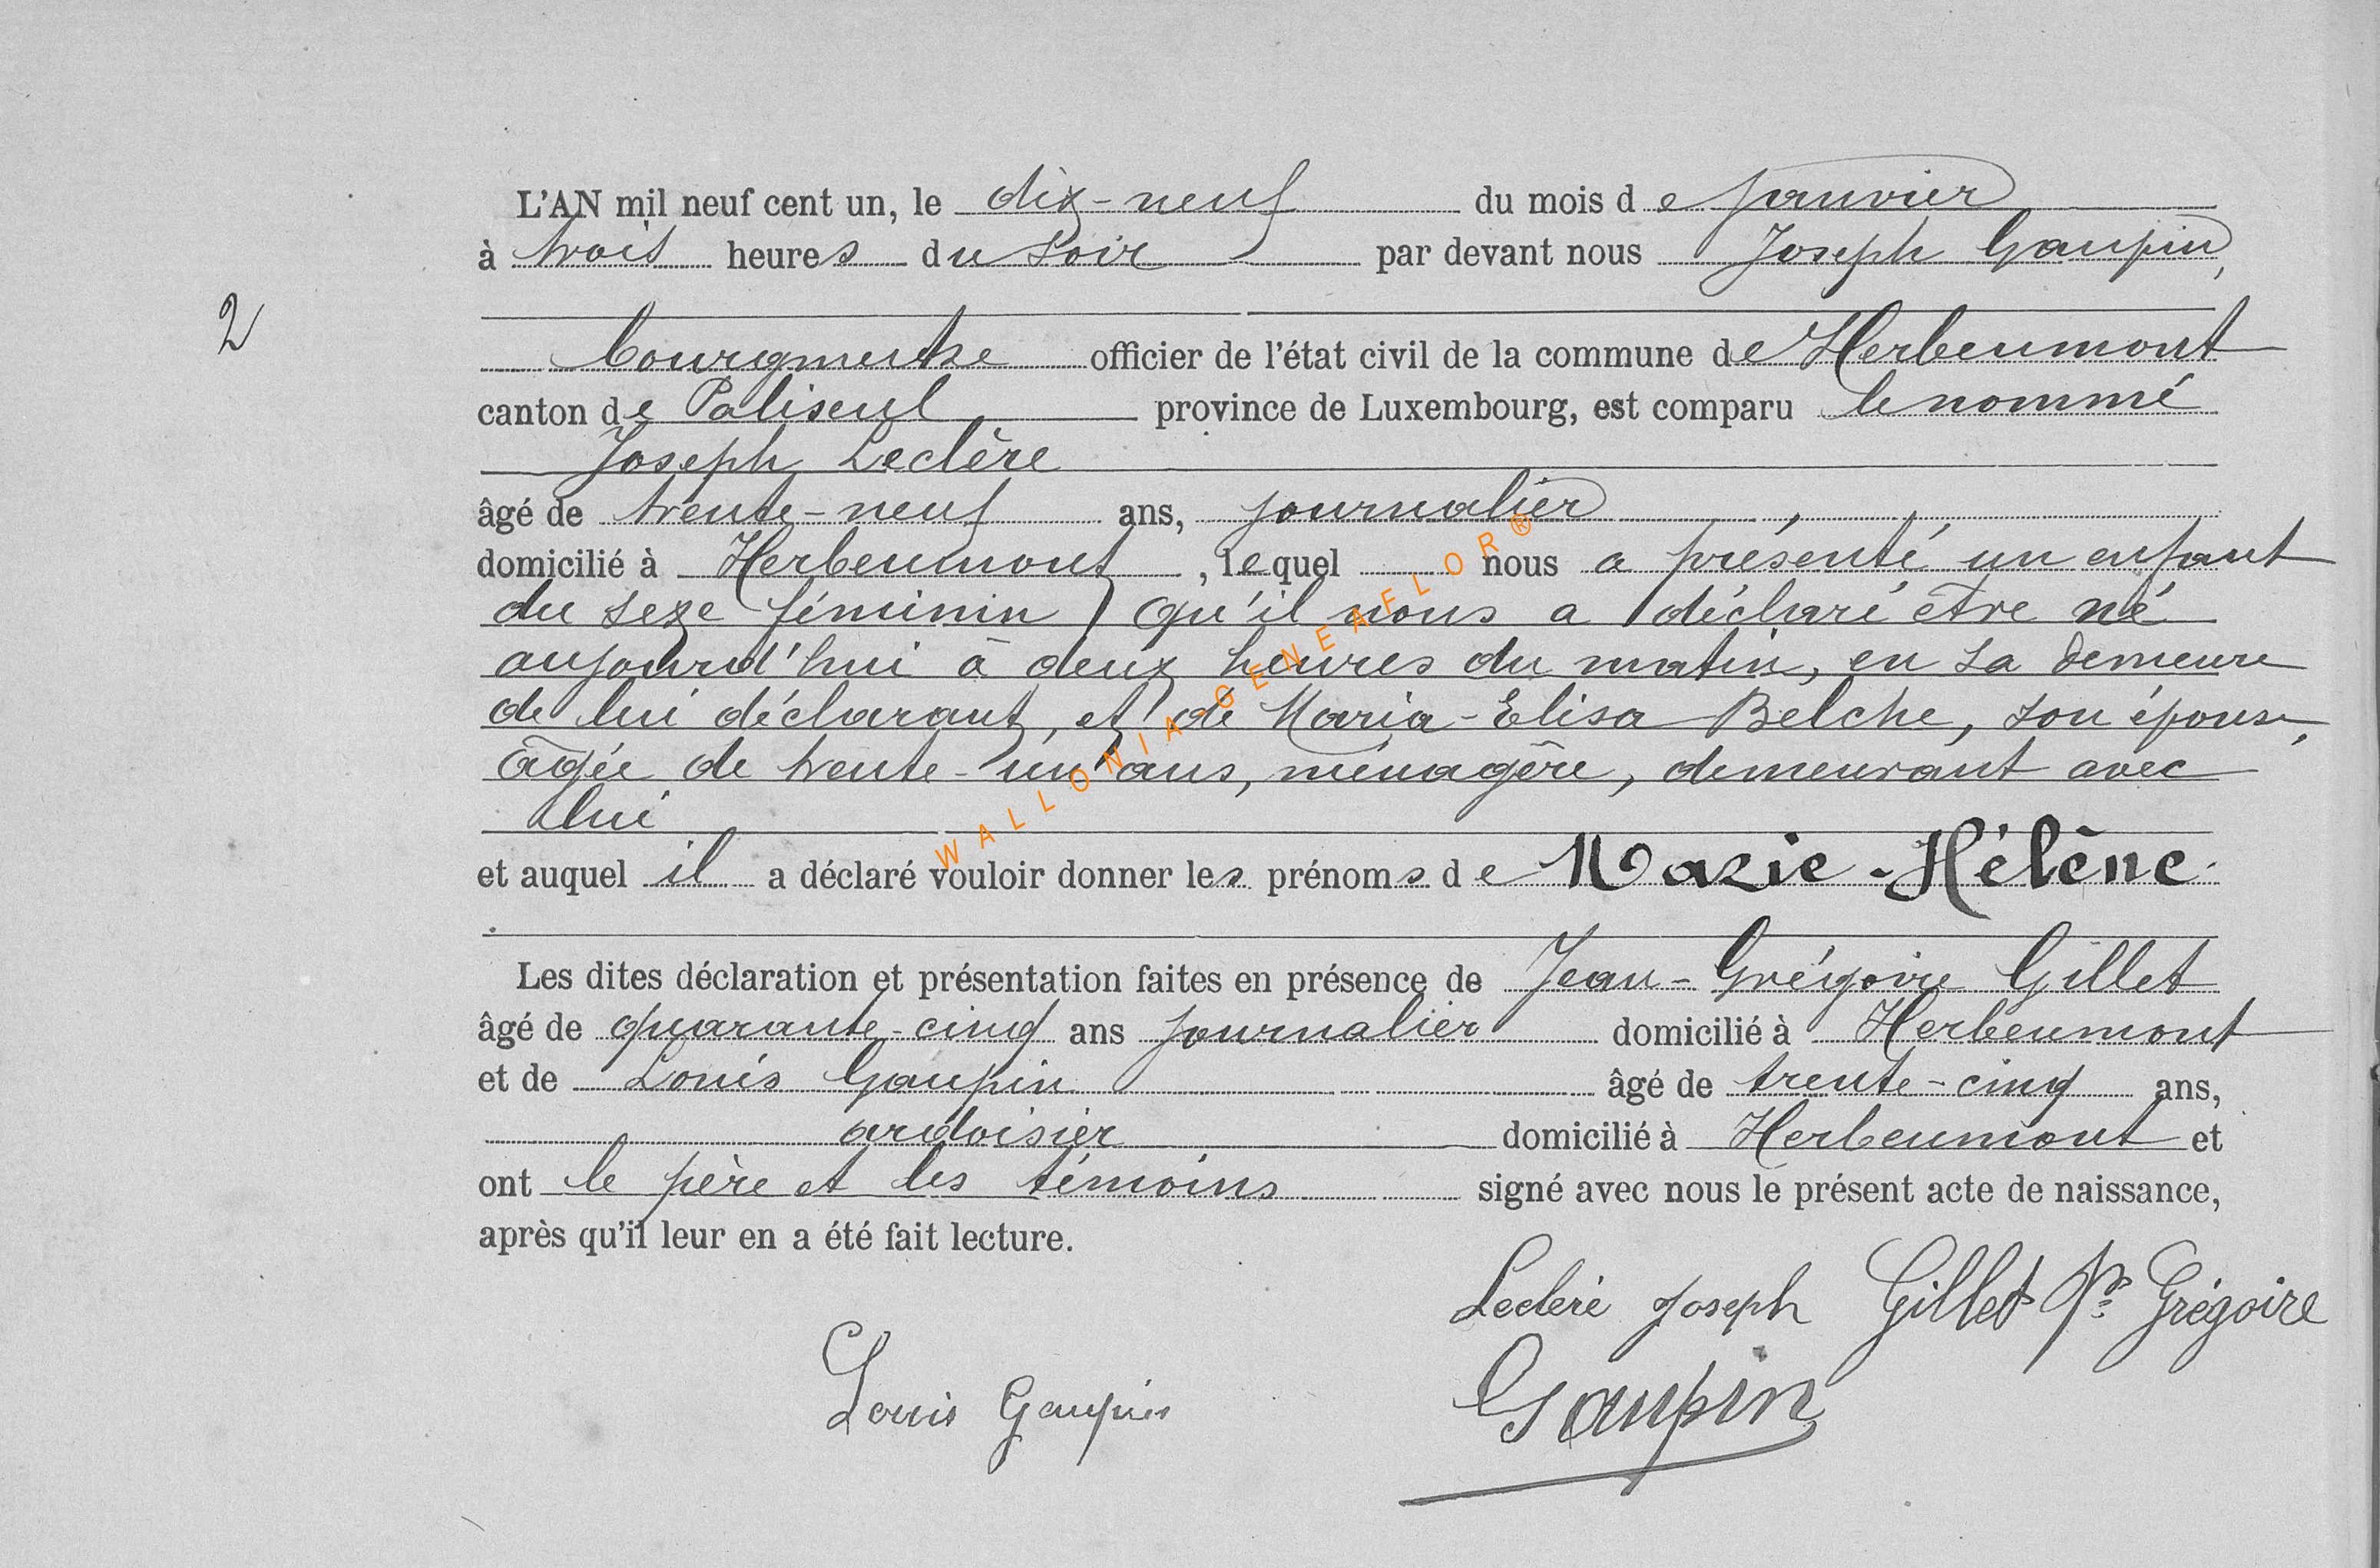 L'AN mil neuf cent un, le dix-neuf du mois de Janvier
à trois heures du soir par devant nous Joseph Gaupin,
2
bourgmestre officier de l'état civil de la commune de Herbeumont
canton de Paliseul province de Luxembourg, est comparu le nommé
Joseph Leclère
âgé de trente-neuf ans, journalier,
domicilié à Herbeumont, lequel nous a présenté un enfant
du sexe féminin qu'il nous a déclaré être né
aujourd'hui à deux heures du matin, en sa demeure
de lui déclarant, et de Maria-Elisa Belche, son épouse,
âgée de trente-un ans, ménagère, demeurant avec
lui
et auquel il a déclaré vouloir donner les prénoms de Marie-Hélène.
Les dites déclaration et présentation faites en présence de Jean-Grégoire Gillet
âgé de quarante-cinq ans journalier domicilié à Herbeumont
et de Louis Gaupin âgé de trente-cinq ans,
ardoisier domicilié à Herbeumont et
ont le père et les témoins signé avec nous le présent acte de naissance,
après qu'il leur en a été fait lecture.
Leclère Joseph Gillet Grégoire
Louis Gaupin Gaupin
WALLONIA GENEAFLOR®